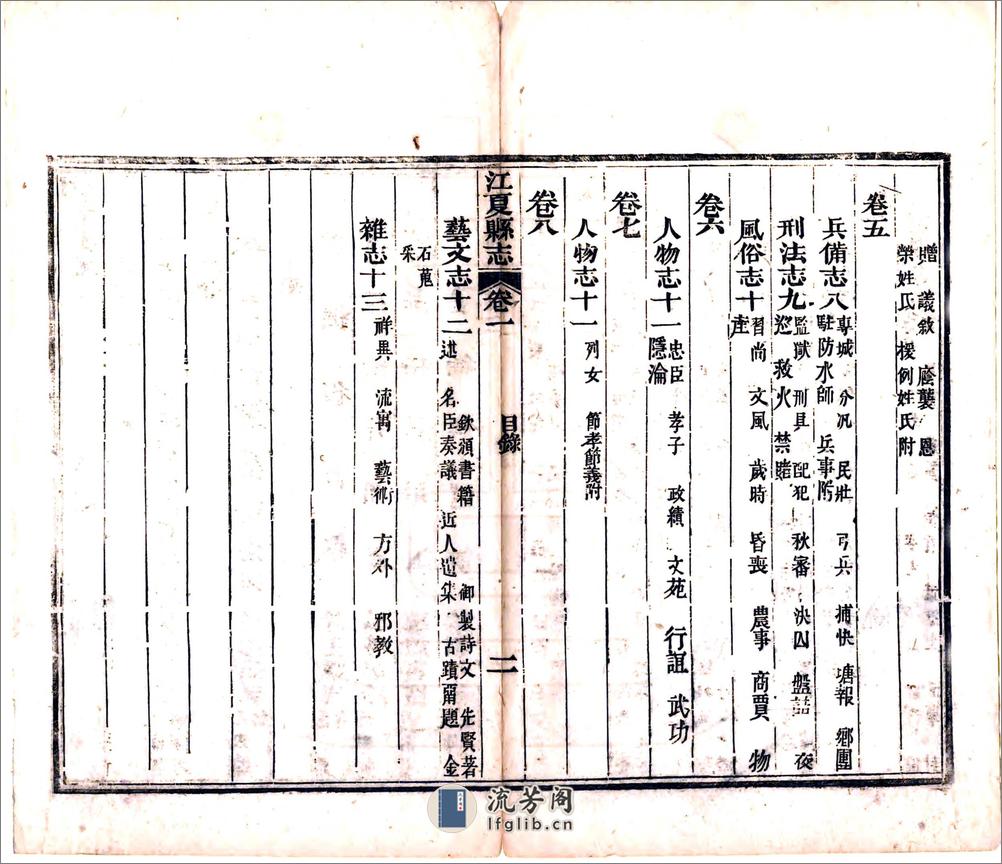 贈　議敘　廕襲　恩
榮姓氏　援例姓氏附
卷五
兵備志八 專城　分汛　民壯　弓兵　捕快　塘報　鄉團
駐防水師　兵事防
刑法志九 監獄　刑具　配犯　秋審　決囚　盤詰　夜
巡　救火　禁賭
風俗志十 習尚　文風　歲時　昏喪　農事　商賈　物
產
卷六
人物志十一 忠臣　孝子　政績　文苑　行誼　武功
隱淪
卷七
人物志十一 列女　節孝節義附
卷八
江夏縣志　卷一　目錄　二
藝文志十二 欽頒書籍　御製詩文　先賢著
述　名臣奏議　近人遺集　古蹟留題　金
石蒐
采
雜志十三 祥異　流寓　藝術　方外　邪教
流芳阁
lfglib.cn